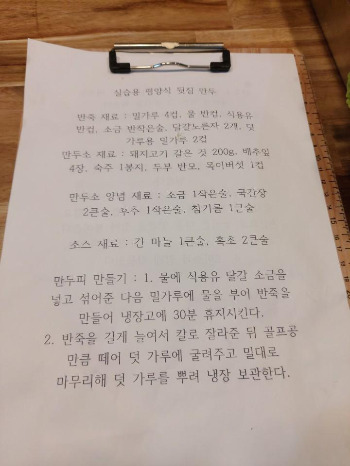 실습용 평양식 뒷심 만두
반죽 재료 : 밀가루 4컵, 물 반컵, 식용유
반컵, 소금 반작은술, 달걀노른자 2개, 덧
가루용 밀가루 2컵
만두소 재료 : 돼지고기 갈은 것 200g, 배추잎
4장, 숙주 1봉지, 두부 반모, 목이버섯 1컵
만두소 양념 재료 : 소금 1작은술, 국간장
2큰술, 후추 1작은술, 참기름 1큰술
소스 재료 : 간 마늘 1큰술, 흑초 2큰술
만두피 만들기 : 1. 물에 식용유 달걀 소금을
넣고 섞어준 다음 밀가루에 물을 부어 반죽을
만들어 냉장고에 30분 휴지시킨다.
2. 반죽을 길게 늘여서 칼로 잘라준 뒤 골프공
만큼 떼어 덧 가루에 굴려주고 밀대로
마무리해 덧 가루를 뿌려 냉장 보관한다.